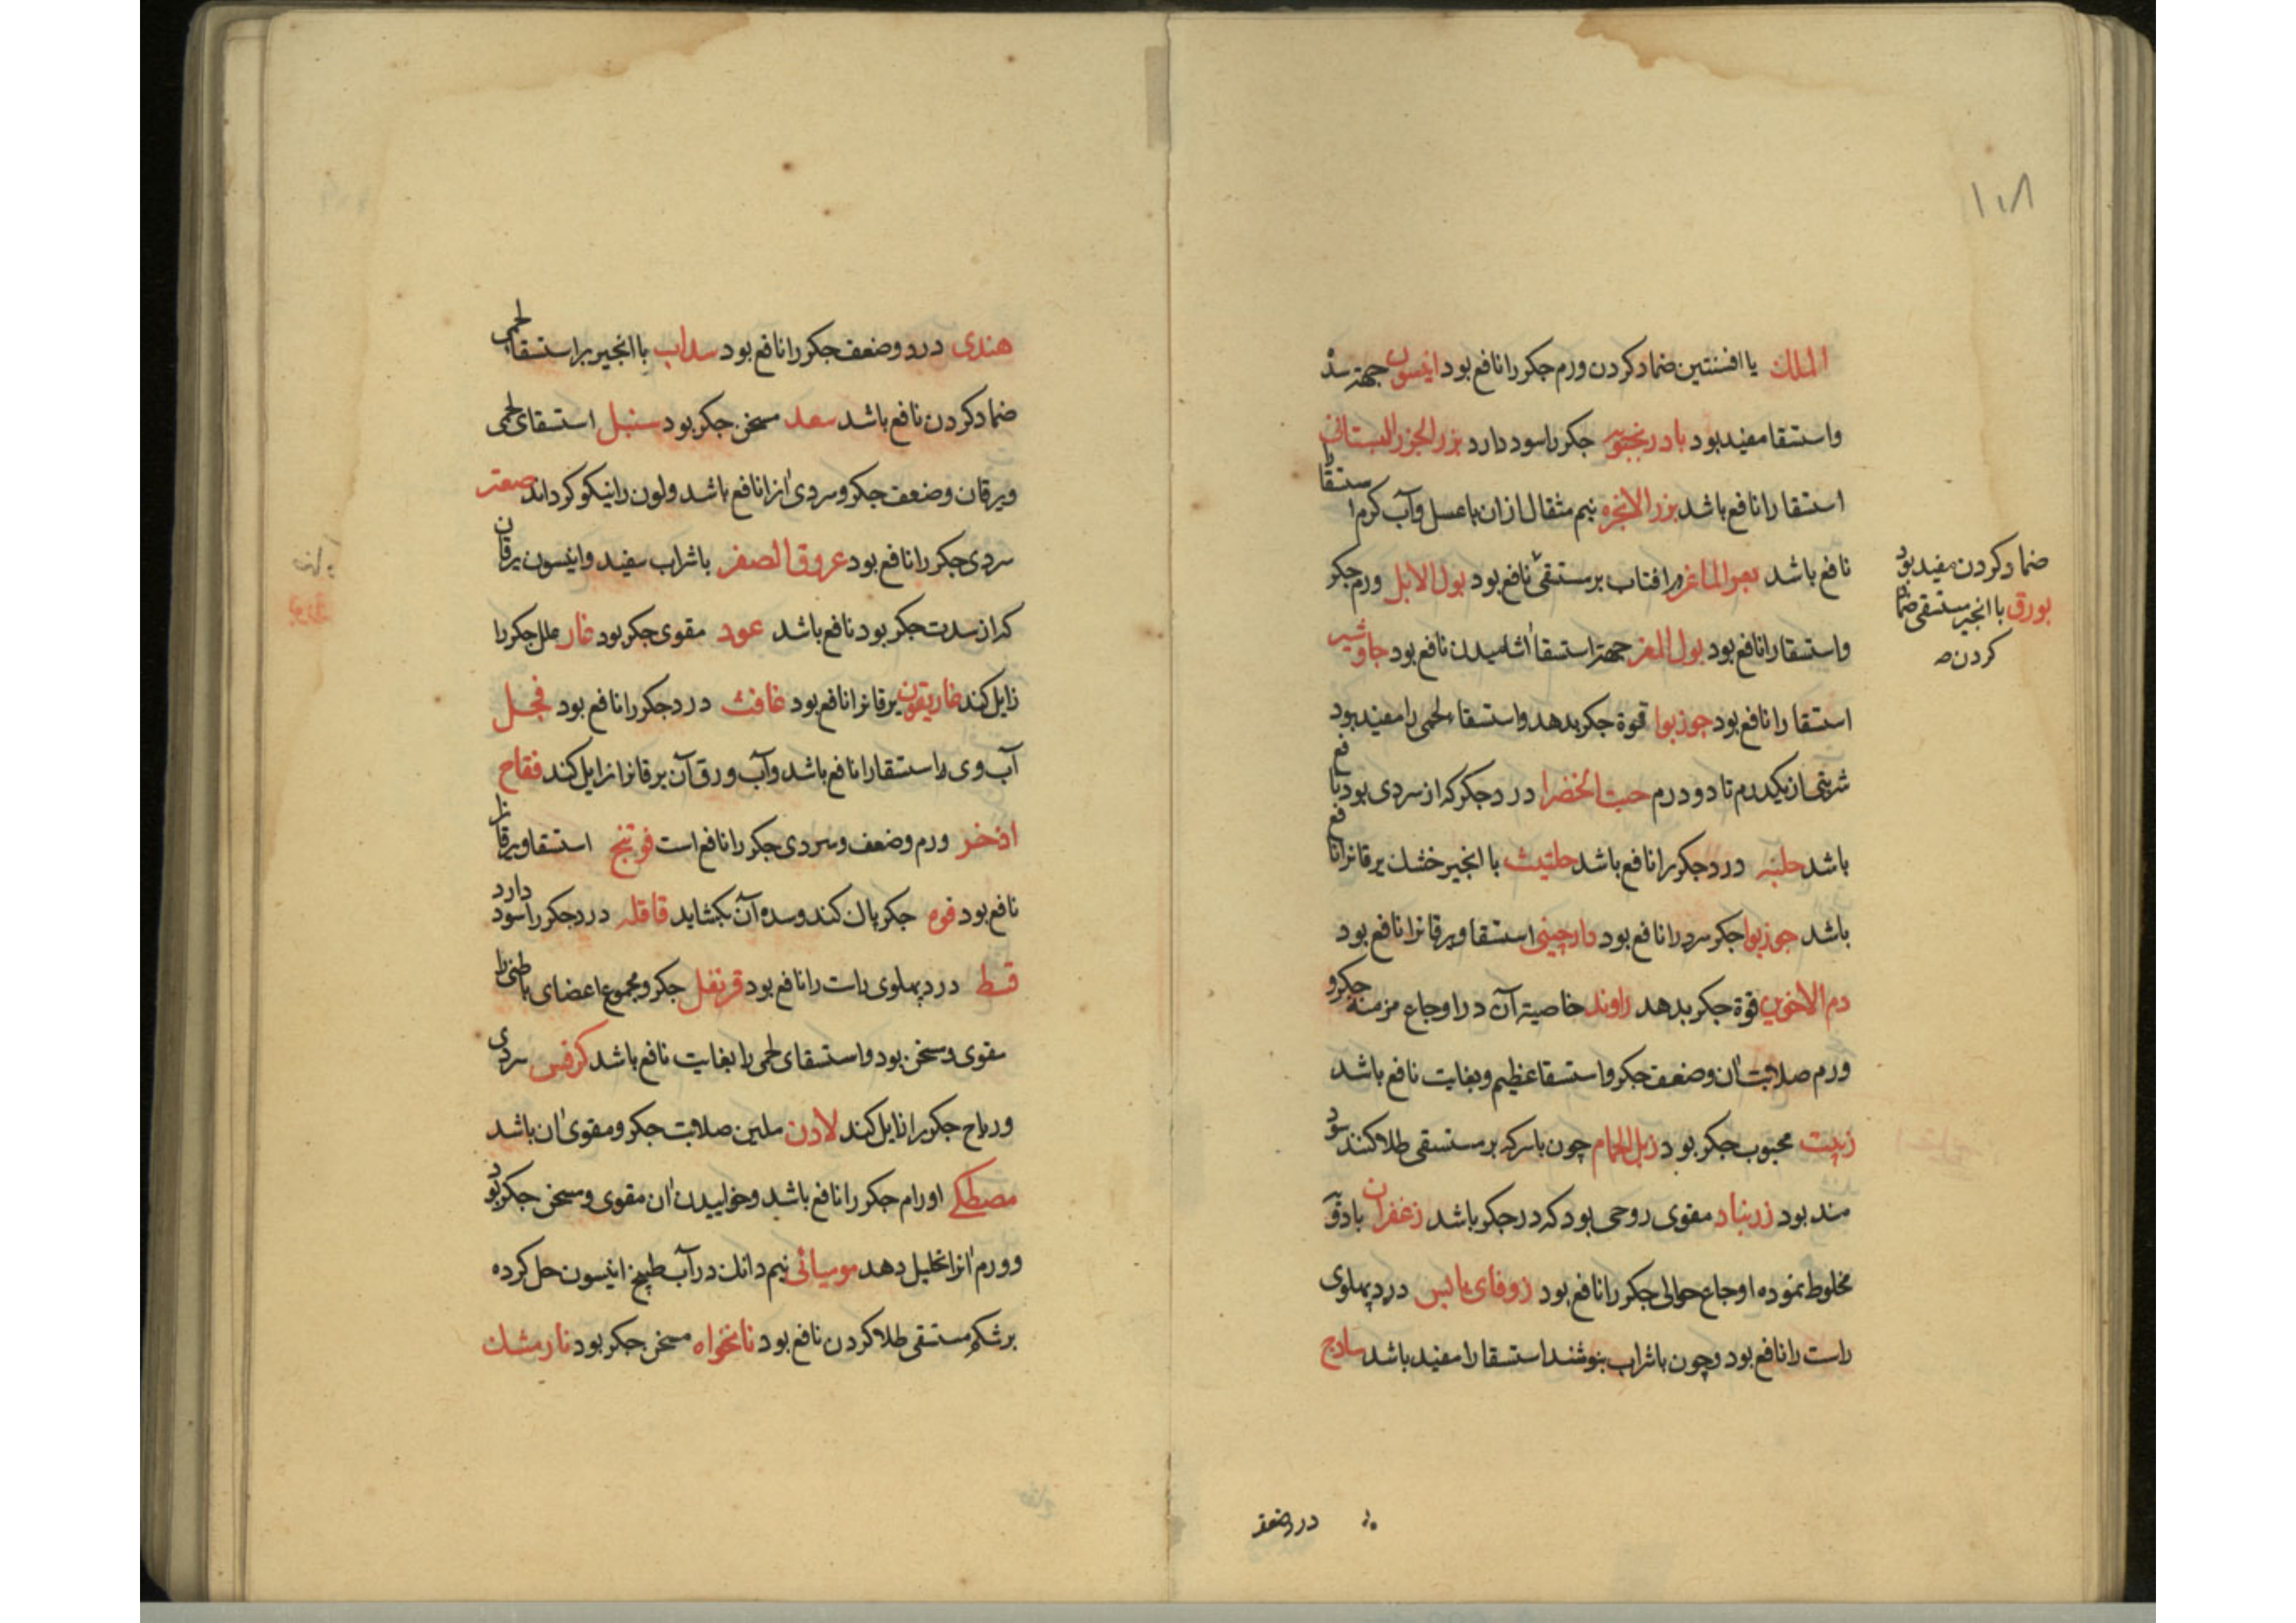 ۱۰۸
الملك با افسنتین ضماد کردن ورم جکر را نافع بود انیسون جهتر سدّ
واستسقا مفید بود بادرنجبویه جکر را سود دارد بزر الجزر البستانی
استسقا را نافع باشد بزر الانجره نیم مثقال ازان با عسل وآب کرم استسقا را
نافع باشد بعر الماعز در افتاب بر مستسقی نافع بود بول الابل ورم جکر
واستسقا را نافع بود بول المعز جهتر استسقا اشامیدن نافع بود جاوشیر
استسقا را نافع بود جوزبوا قوة جکر بدهد واستسقاء لحمی را مفید بود
شربتی از یکدرم تا دو درم حبث الخضرا درد جکر که از سردی بود نافع
باشد حلبه درد جکر را نافع باشد حلتیث با انجیر خشك یرقانرا نافع
باشد جوزبوا جکر سرد را نافع بود دارچینی استسقا ویرقانرا نافع بود
دم الاخوین قوة جکر بدهد راوند خاصیة آن در اوجاع مزمنه جکر و
ورم صلابت آن وضعف جکر واستسقا عظیم وبغایت نافع باشد
زبیت محبوب جکر بود زبل الحمام چون با سرکه بر مستسقی طلا کنند سود
مند بود زرنباد مقوی روحی بود که در جکر باشد زعفران با دوقو
مخلوط نموده اوجاع حوالی جکر را نافع بود زوفای یابس درد پهلوی
راست را نافع بود وچون با شراب بنوشند استسقا را مفید باشد سادج
ضماد کردن مفید بود
بورق با انجیر مستسقی ضماد
کردن صه
هندی درد وضعف جکر را نافع بود سداب با انجیر بر استسقای لحمی
ضماد کردن نافع باشد سعد مسخن جکر بود سنبل استسقای لحمی
ویرقان وضعف جکر وسردی آنرا نافع باشد ولون را نیکو کرداند صعتر
سردی جکر را نافع بود عروق الصفر با شراب سفید وانیسون یرقان
که از سدت جکر بود نافع باشد عود مقوی جکر بود غار علل جکر را
زایل کند غاریقون یرقانرا نافع بود غافث درد جکر را نافع بود فجل
آب وی را استسقا را نافع باشد وآب ورق آن یرقانرا زایل کند فقاح
اذخر ورم وضعف وسردی جکر را نافع است فوتنج استسقا ویرقانرا
نافع بود فوه جکر پاك کند وسده آن بکشاید قاقله درد جکر را سود دارد
قسط درد پهلوی راست را نافع بود قرنفل جکر ومجموع اعضای باطنی را
مقوی ومسخن بود واستسقای لحمی را بغایت نافع باشد کرفس سردی
وریاح جکر را زایل کند لادن ملین صلابت جکر ومقوی آن باشد
مصطکی اورام جکر را نافع باشد وخواییدن آن مقوی ومسخن جکر بود
وورم آنرا تحلیل دهد مومیائی نیم دانك در آب طبیخ انیسون حل کرده
بر شکم مستسقی طلا کردن نافع بود نانخواه مسخن جکر بود نارمشك